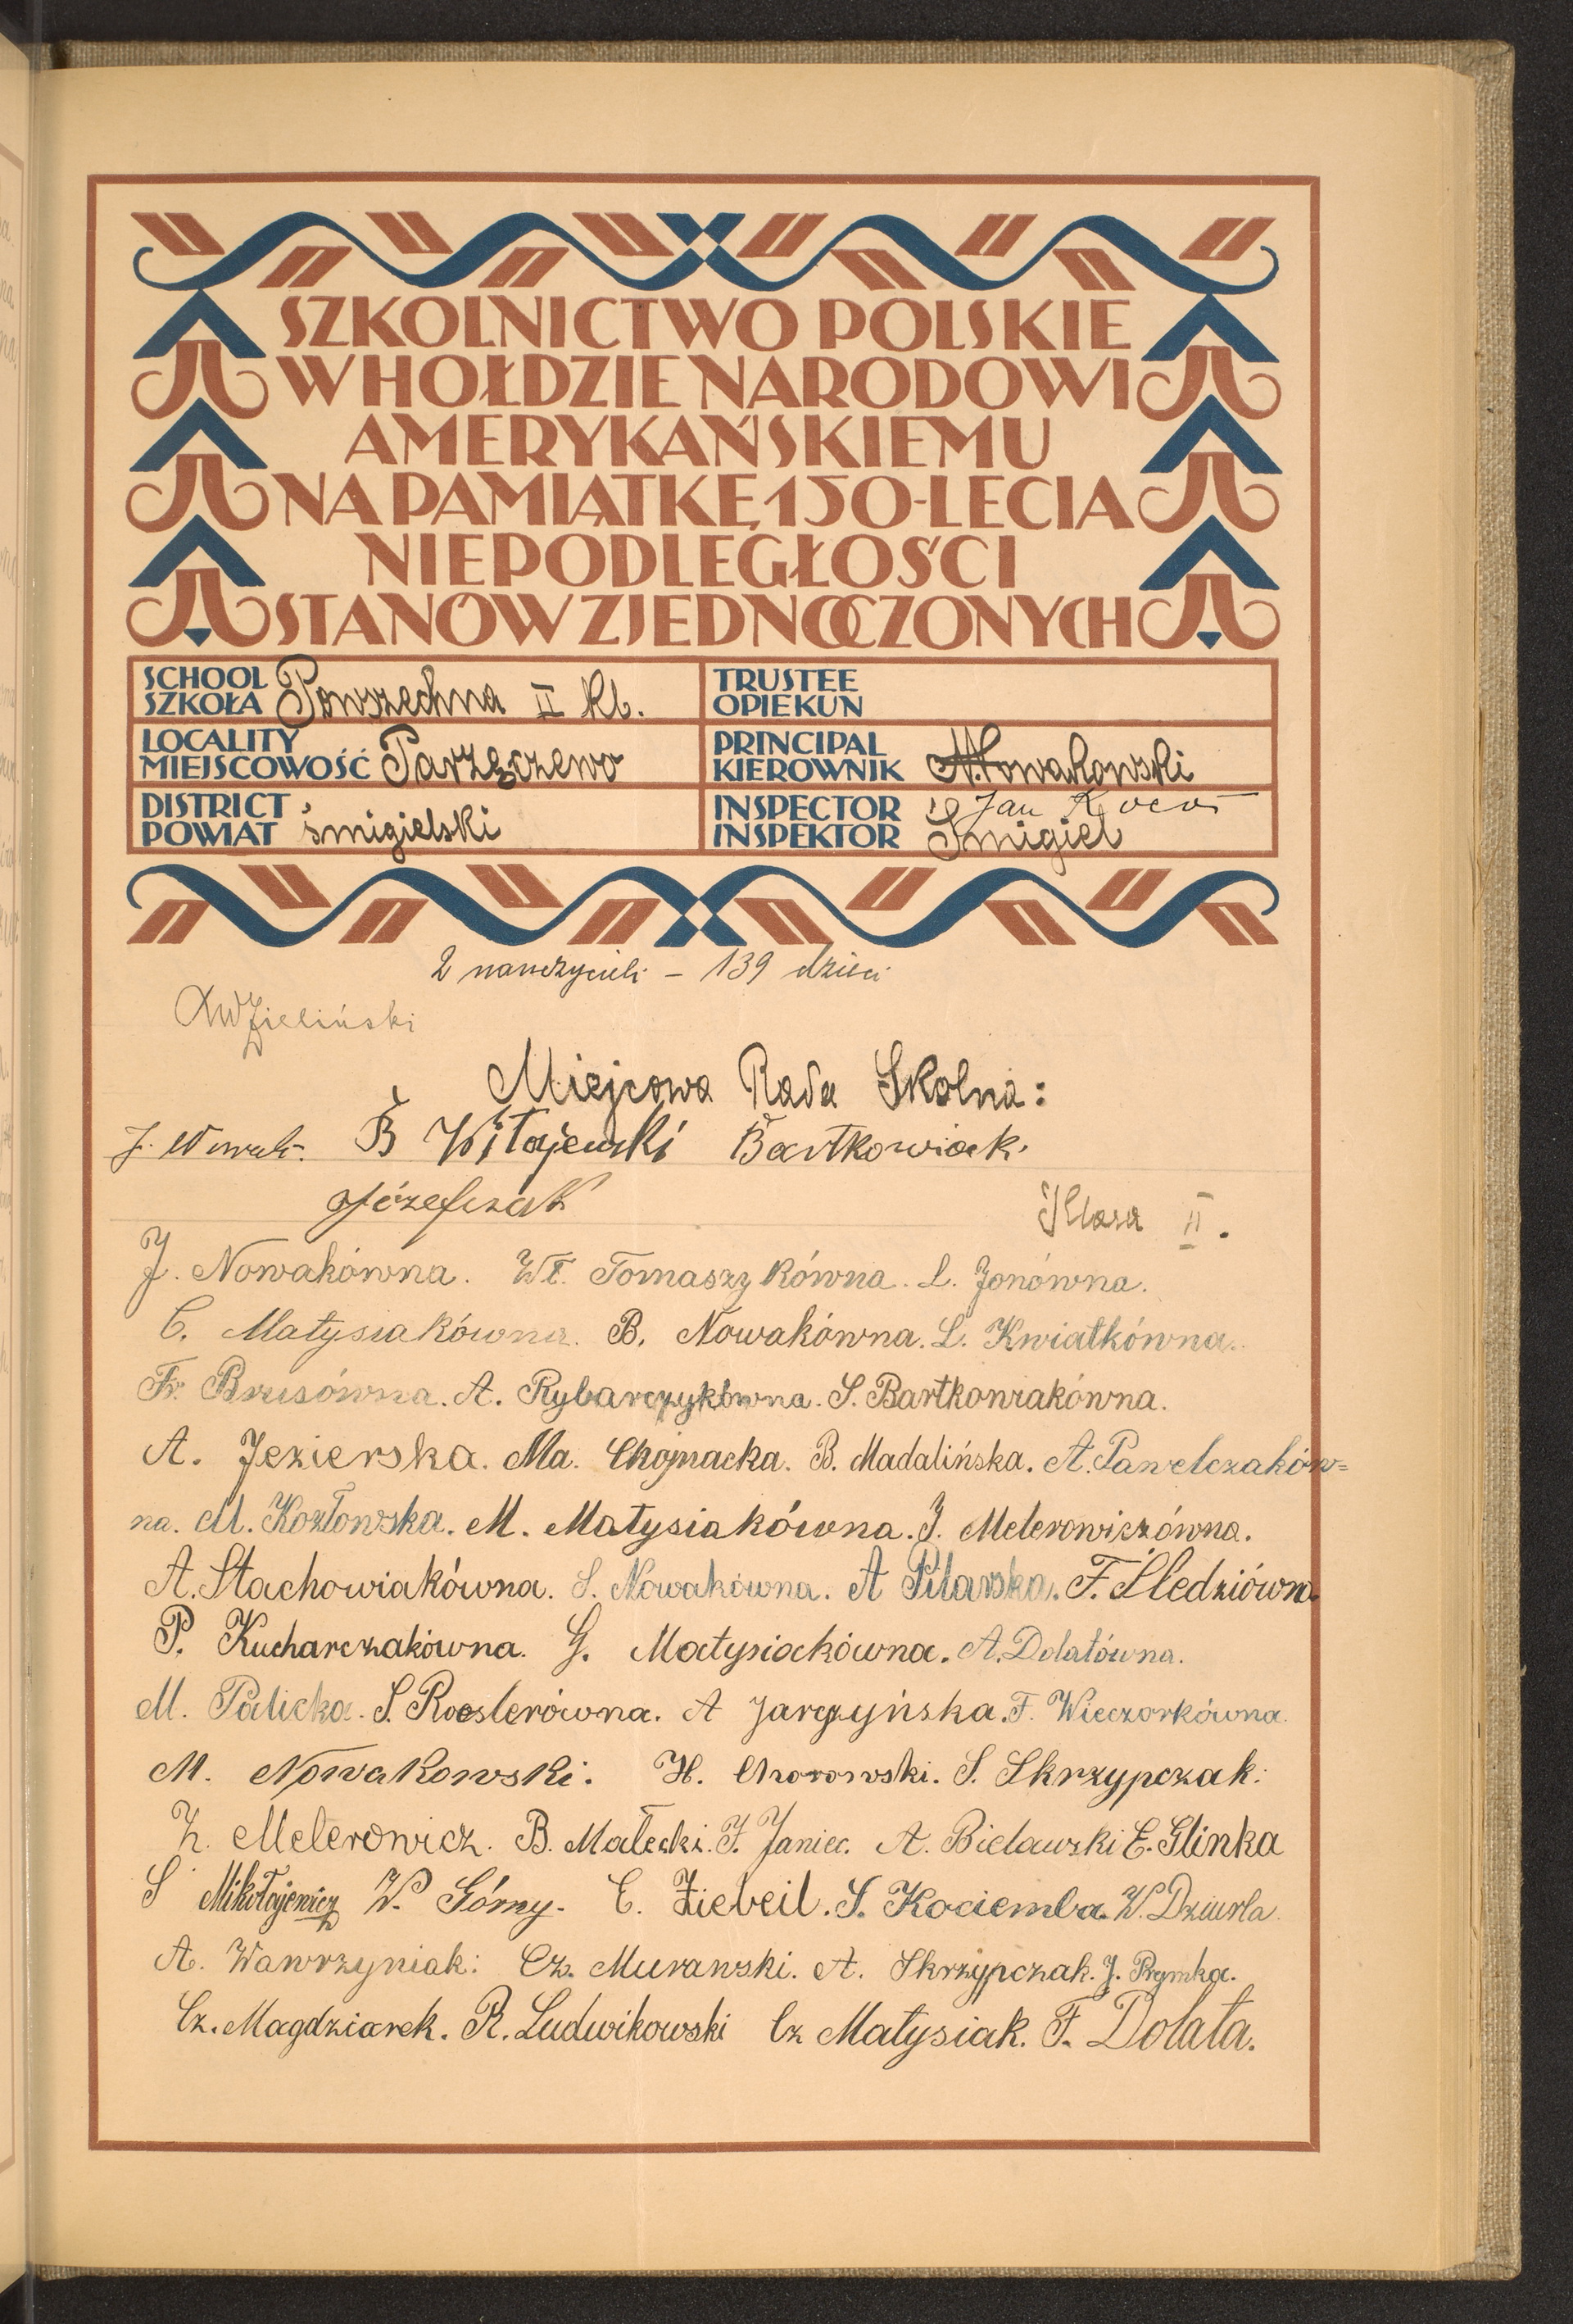 SZKOLNICTWO POLSKIE
W HOŁDZIE NARODOWI
AMERYKAŃSKIEMU
NA PAMIĄTKĘ 150-LECIA
NIEPODLEGŁOŚCI
STANÓW ZJEDNOCZONYCH
SCHOOL SZKOŁA Powszechna II kl.
TRUSTEE OPIEKUN
LOCALITY MIEJSCOWOŚĆ Parzęczewo
PRINCIPAL KIEROWNIK M. Nowakowski
DISTRICT POWIAT śmigielski
INSPECTOR INSPEKTOR Jan Kocoń Śmigiel
2 nauczycieli - 139 dzieci
Zieliński
Miejcowa Rada Skolna:
J. Nowak. B Witajewski Bartkowiak.
Józefczak
Klasa II.
J. Nowakówna. Wł. Tomaszykówna. L. Jonówna.
C. Matysiakówna. B. Nowakówna. L. Kwiatkówna.
Fr. Brusówna. A. Rybarczykówna. S. Bartkowiakówna.
A. Jezierska. Ma. Chojnacka. B. Madalińska. A. Pawelczaków=
na. M. Kozłowska. M. Matysiakówna. J. Melerowiczówna.
A. Stachowiakówna. S. Nowakówna. A Pilarska. F. Śledziówna.
P. Kucharczakówna. G. Matysiakówna. A. Dolatówna.
M. Palicka. S. Roeslerówna. A Jarczyńska. F. Wieczorkówna.
M. Nowakowski. H. Chorowski. S. Skrzypczak.
Z. Melerowicz. B. Małecki. F. Janiec. A. Bielawski E. Glinka
S Mikołajewicz W. Górny. C. Ziebeil. S. Kociemba. W. Dziurla.
A. Wawrzyniak: Cz. Murawski. A. Skrzypczak. J. Prymka.
Cz. Magdziarek. R. Ludwikowski Cz Matysiak. F. Dolata.